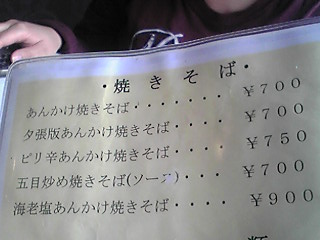 ・焼きそば・
あんかけ焼きそば・・・・・・・￥７００
夕張版あんかけ焼きそば・・・・￥７００
ピリ辛あんかけ焼きそば・・・・￥７５０
五目炒め焼きそば(ソース)・・・￥７００
海老塩あんかけ焼きそば・・・・￥９００